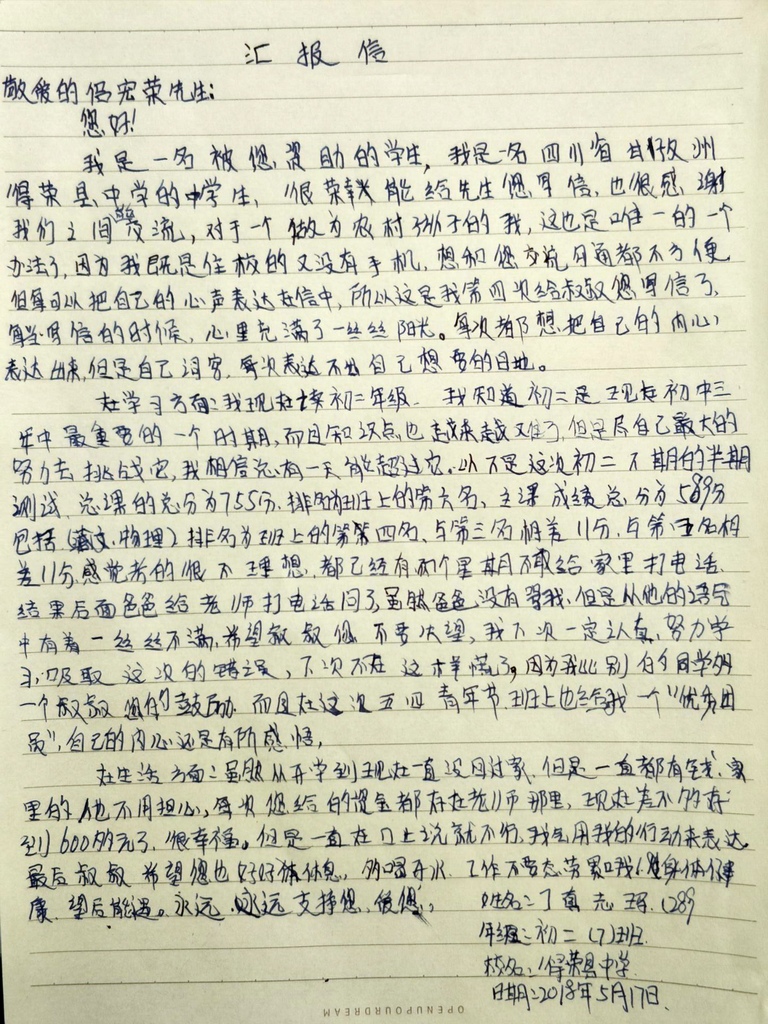 汇报信
敬爱的倪宏荣先生:
您好!
我是一名被您资助的学生,我是一名四川省甘孜州
得荣县中学的中学生,很荣幸能给先生您写信,也很感谢
我们之间的交流,对于一个做为农村孩子的我,这也是唯一的一个
办法了,因为我既是住校的又没有手机,想和您交流沟通都不方便
但每可以把自己的心声表达在信中,所以这是我第四次给叔叔您写信了,
每当写信的时候,心里充满了一丝丝阳光。每次都想把自己的内心
表达出来,但是自己词穷,每次表达不出自己想要的目地。
在学习方面:我现在读初二年级.我知道初二是现在初中三
年中最重要的一个时期,而且知识点也越来越难了,但是尽自己最大的
努力去挑战它,我相信总有一天能超过它.以不是这次初二下期的半期
测试,总课的总分为755分,排名班上的第六名、主课成绩总分为589分
包括(语文.物理)排名为班上的第四名,与第三名相差11分,与第五名相
差11分,感觉考的很不理想,都已经有两个星期不敢给家里打电话,
结果后面爸爸给老师打电话问了,虽然爸爸没有骂我,但是从他的语气
中有着一丝丝不满,希望叔叔您不要失望,我下次一定认真,努力学
习,吸取这次的错误,下次不在这样慌了,因为我比别的同学多
一个叔叔您的鼓励.而且在这次五四青年节班上也给我一个"优秀团
员",自己的内心还是有所感悟,
在生活方面:虽然从开学到现在一直没回过家,但是一直都有钱,家
里的他不用担心,每次您给的资金都存在老师那里,现在差不多存
到1600多元了,很幸福。但是一直在口上说就不行,我会用我的行动来表达
最后叔叔希望您也好好休息,多喝开水.工作不要太劳累哦!身体健
康,望后能遇。永远永远支持您,
姓名:丁真志玛.1289
年级:初二(7)班.
校名:得荣县中学
日期:2018年5月17日.
OPENUPYOURDREAM